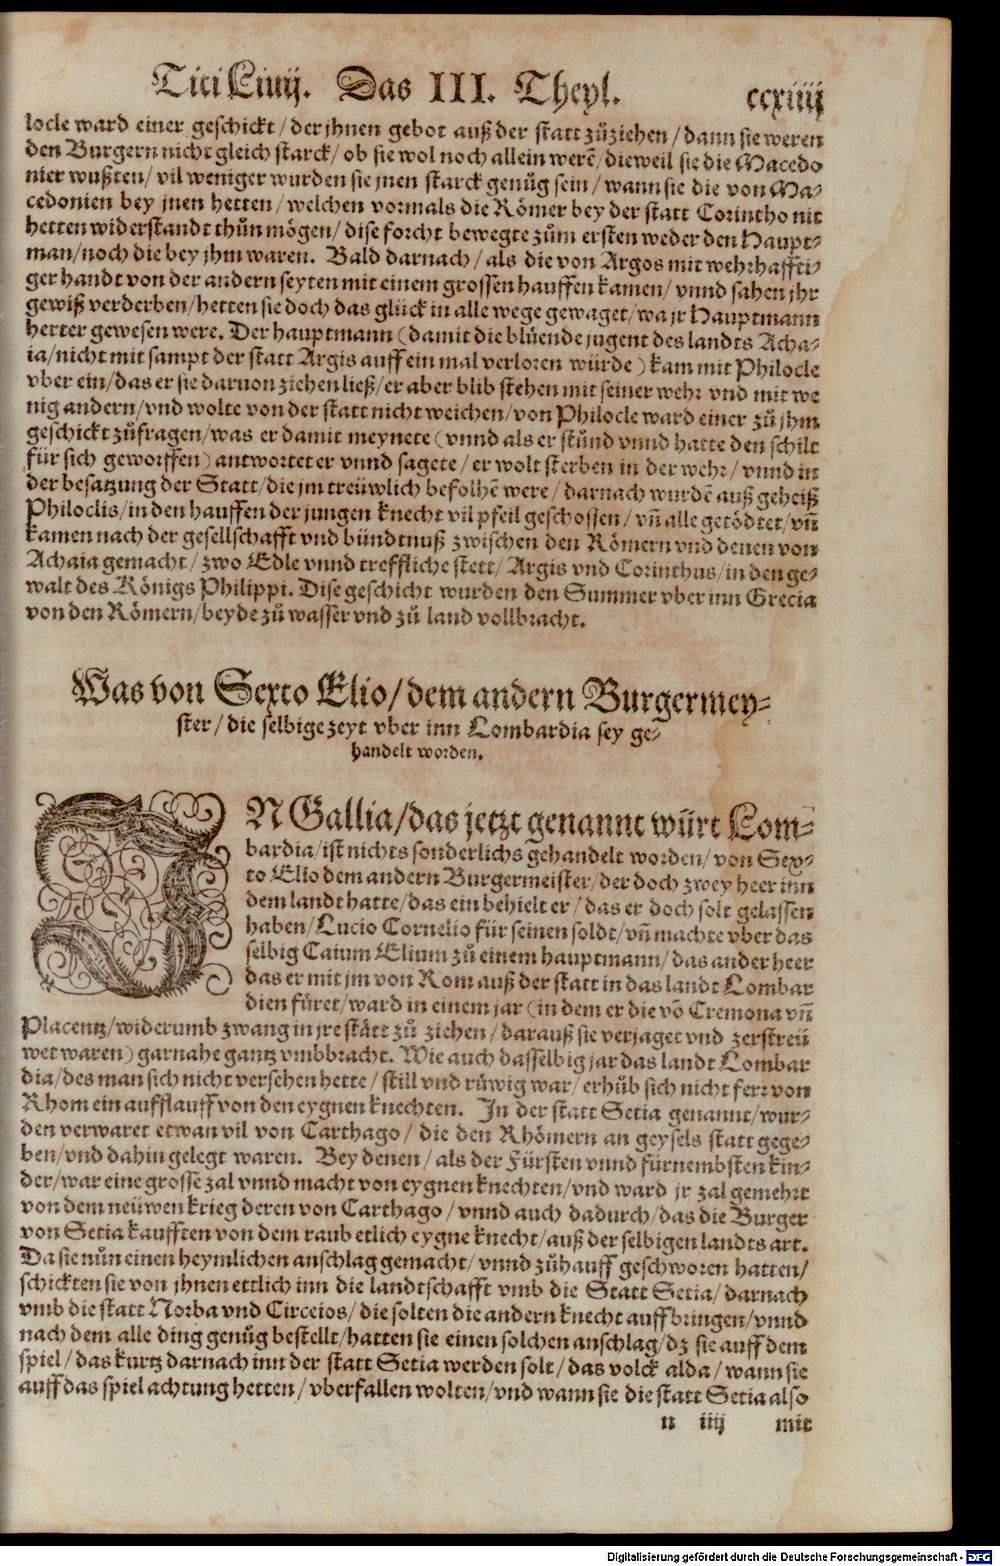 Titi Liuij. Das III. Theyl. ccxiiij
locle ward einer geschickt / der jhnen gebot auß der statt zůziehen / dann sie weren
den Burgern nicht gleich starck / ob sie wol noch allein werē / dieweil sie die Macedo
nier wußten / vil weniger wurden sie jnen starck genůg sein / wann sie die von Ma-
cedonien bey jnen hetten / welchen vormals die Römer bey der statt Corintho nit
hetten widerstandt thůn mögen / dise forcht bewegte zům ersten weder den Haupt-
man / noch die bey jhm waren. Bald darnach / als die von Argos mit wehrhaffti-
ger handt von der andern seyten mit einem grossen hauffen kamen / vnnd sahen jhr
gewiß verderben / hetten sie doch das glück in alle wege gewaget / wa jr Hauptmann
herter gewesen were. Der hauptmann (damit die blüende jugent des landts Acha-
ia / nicht mit sampt der statt Argis auff ein mal verloren würde) kam mit Philocle
vber ein / das er sie daruon ziehen ließ / er aber blib stehen mit seiner wehr vnd mit we
nig andern / vnd wolte von der statt nicht weichen / von Philocle ward einer zů jhm
geschickt zůfragen / was er damit meynete (vnnd als er stůnd vnnd hatte den schilt
für sich geworffen) antwortet er vnnd sagete / er wolt sterben in der wehr / vnnd in
der besatzung der Statt / die jm treüwlich befolhē were / darnach wurdē auß geheiß
Philoclis / in den hauffen der jungen knecht vil pfeil geschossen / vñ alle getödtet / vñ
kamen nach der gesellschafft vnd bündtnuß zwischen den Römern vnd denen von
Achaia gemacht / zwo Edle vnnd treffliche stett / Argis vnd Corinthus / in den ge-
walt des Königs Philippi. Dise geschicht wurden den Summer vber inn Grecia
von den Römern / beyde zů wasser vnd zů land vollbracht.
Was von Sexto Elio / dem andern Burgermey-
ster / die selbige zeyt vber inn Lombardia sey ge-
handelt worden.
IN Gallia / das jetzt genannt würt Lom-
bardia / ist nichts sonderlichs gehandelt worden / von Sex-
to Elio dem andern Burgermeister / der doch zwey heer inn
dem landt hatte / das ein behielt er / das er doch solt gelassen
haben / Lucio Cornelio für seinen soldt / vñ machte vber das
selbig Caium Elium zů einem hauptmann / das ander heer
das er mit jm von Rom auß der statt in das landt Lombar
dien füret / ward in einem jar (in dem er die vō Cremona vñ
Placentz / widerumb zwang in jre stätt zů ziehen / darauß sie verjaget vnd zerstreü
wet waren) garnahe gantz vmbbracht. Wie auch dasselbig jar das landt Lombar
dia / des man sich nicht versehen hette / still vnd růwig war / erhůb sich nicht ferr von
Rhom ein aufflauff von den eygnen knechten. In der statt Setia genannt / wur-
den verwaret etwan vil von Carthago / die den Rhömern an geysels statt gege-
ben / vnd dahin gelegt waren. Bey denen / als der Fürsten vnnd fürnembsten kin-
der / war eine grosse zal vnnd macht von eygnen knechten / vnd ward jr zal gemehrt
von dem neüwen krieg deren von Carthago / vnnd auch dadurch / das die Burger
von Setia kaufften von dem raub etlich eygne knecht / auß der selbigen landts art.
Da sie nůn einen heymlichen anschlag gemacht / vnnd zůhauff geschworen hatten /
schickten sie von jhnen ettlich inn die landtschafft vmb die Statt Setia / darnach
vmb die statt Norba vnd Circeios / die solten die andern knecht auffbringen / vnnd
nach dem alle ding genůg bestellt / hatten sie einen solchen anschlag / dz sie auff dem
spiel / das kurtz darnach inn der statt Setia werden solt / das volck alda / wann sie
auff das spiel achtung hetten / vberfallen wolten / vnd wann sie die statt Setia also
n iiij mit
Digitalisierung gefördert durch die Deutsche Forschungsgemeinschaft - DFG